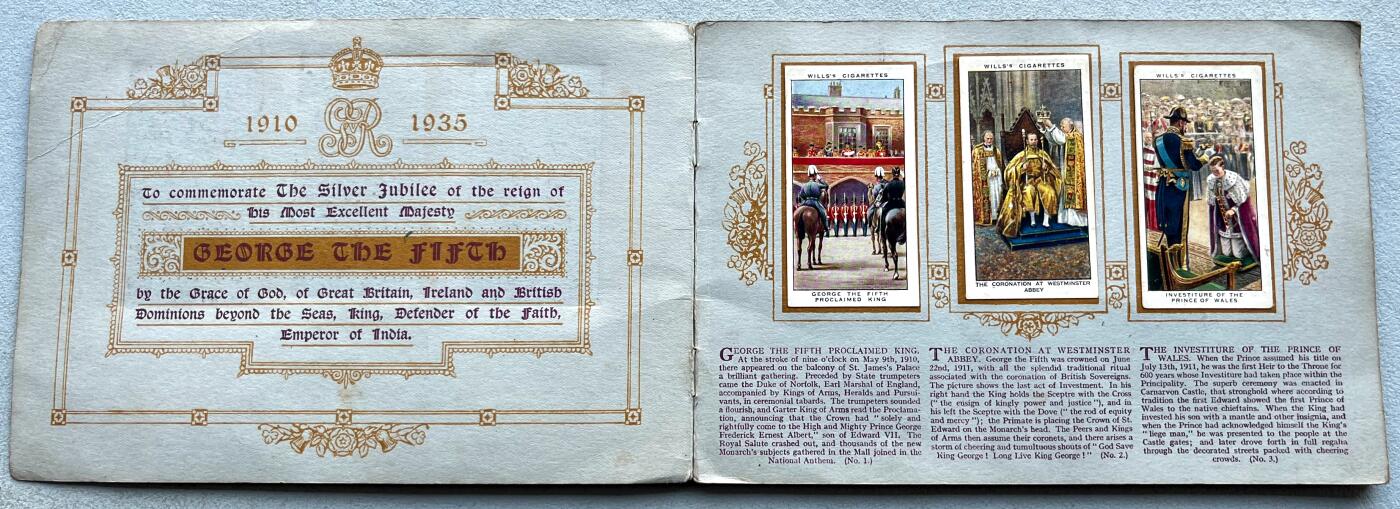 1910 GRV 1935
To commemorate The Silver Jubilee of the reign of
His Most Excellent Majesty
GEORGE THE FIFTH
by the Grace of God, of Great Britain, Ireland and British
Dominions beyond the Seas, King, Defender of the Faith,
Emperor of India.
WILLS'S CIGARETTES
GEORGE THE FIFTH
PROCLAIMED KING
WILLS'S CIGARETTES
THE CORONATION AT WESTMINSTER
ABBEY
WILLS'S CIGARETTES
INVESTITURE OF THE
PRINCE OF WALES
GEORGE THE FIFTH PROCLAIMED KING.
At the stroke of nine o'clock on May 9th, 1910,
there appeared on the balcony of St. James's Palace
a brilliant gathering. Preceded by State trumpeters
came the Duke of Norfolk, Earl Marshal of England,
accompanied by Kings of Arms, Heralds and Pursui-
vants, in ceremonial tabards. The trumpeters sounded
a flourish, and Garter King of Arms read the Proclama-
tion, announcing that the Crown had "solely and
rightfully come to the High and Mighty Prince George
Frederick Ernest Albert," son of Edward VII. The
Royal Salute crashed out, and thousands of the new
Monarch's subjects gathered in the Mall joined in the
National Anthem. (No. 1.)
THE CORONATION AT WESTMINSTER
ABBEY. George the Fifth was crowned on June
22nd, 1911, with all the splendid traditional ritual
associated with the coronation of British Sovereigns.
The picture shows the last act of Investiture. In his
right hand the King holds the Sceptre with the Cross
("the ensign of kingly power and justice"), and in
his left the Sceptre with the Dove ("the rod of equity
and mercy"); the Primate is placing the Crown of St.
Edward on the Monarch's head. The Peers and Kings
of Arms then assume their coronets, and there arises a
storm of cheering and tumultuous shouts of "God Save
King George! Long Live King George!" (No. 2.)
THE INVESTITURE OF THE PRINCE OF
WALES. When the Prince assumed his title on
July 13th, 1911, he was the first Heir to the Throne for
600 years whose Investiture had taken place within the
Principality. The superb ceremony was enacted in
Carnarvon Castle, that stronghold where according to
tradition the first Edward showed the first Prince of
Wales to the native chieftains. When the King had
invested his son with a mantle and other insignia, and
when the Prince had acknowledged himself the King's
"liege man," he was presented to the people at the
Castle gates; and later drove forth in full regalia
through the decorated streets packed with cheering
crowds. (No. 3.)